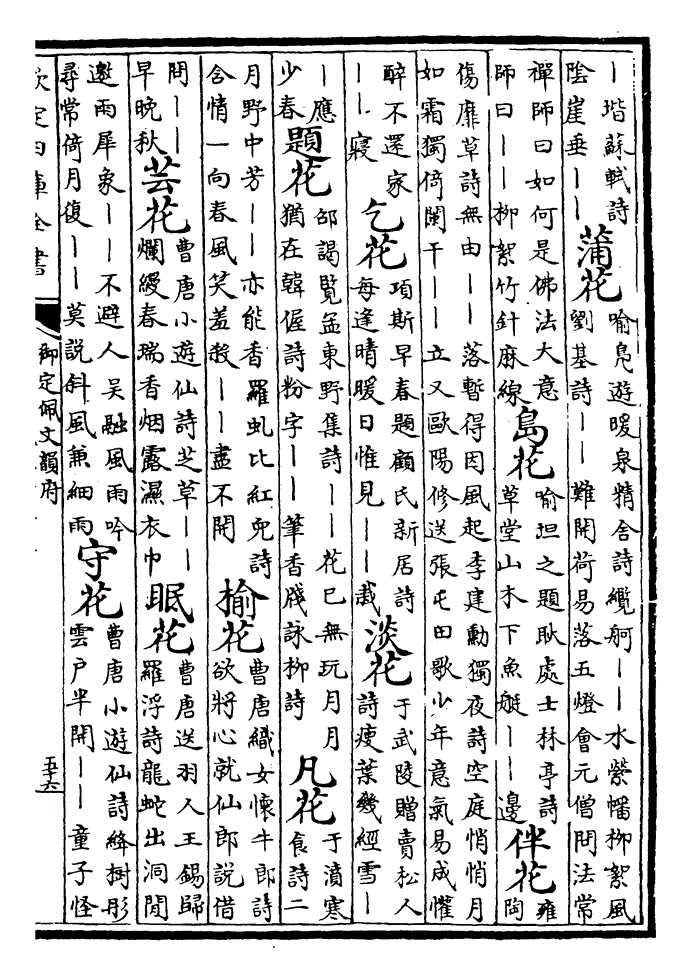 ｜堦蘇軾詩
陰崖垂｜｜
蒲花
喻鳧遊暖泉精舍詩纜舸｜｜水縈幡柳絮風
劉基詩｜｜難開荷易落五燈會元僧問法常
禪師曰如何是佛法大意
師曰｜｜柳絮竹針麻線
島花
喻坦之題耿處士林亭詩
草堂山木下魚艇｜｜邊
伴花
雍
陶
傷靡草詩無由｜｜落暫得因風起李建勳獨夜詩空庭悄悄月
如霜獨倚闌干｜｜立又歐陽修送張屯田歌少年意氣易成懽
醉不還家
｜｜寢
乞花
項斯早春題顧氏新居詩
每逢晴暖日惟見｜｜栽
淡花
于武陵贈賣松人
詩瘦葉幾經雪｜
｜應
少春
題花
邵謁覽孟東野集詩｜｜花已無玩月月
猶在韓偓詩粉字｜｜｜筆香牋詠柳詩
凡花
于濆寒
食詩二
月野中芳｜｜亦能香羅虬比紅兒詩
含情一向春風笑羞殺｜｜盡不開
榆花
曹唐織女懷牛郎詩
欲將心就仙郎說借
問｜｜
早晚秋
芸花
曹唐小遊仙詩芝草｜｜
爛縵春瑞香烟露濕衣巾
眠花
曹唐送羽人王錫歸
羅浮詩龍蛇出洞閒
邀雨犀象｜｜不避人吳融風雨吟
尋常倚月復｜｜莫說斜風兼細雨
守花
曹唐小遊仙詩絳樹彤
雲戶半開｜｜童子怪
欽定四庫全書
御定佩文韻府
五十六